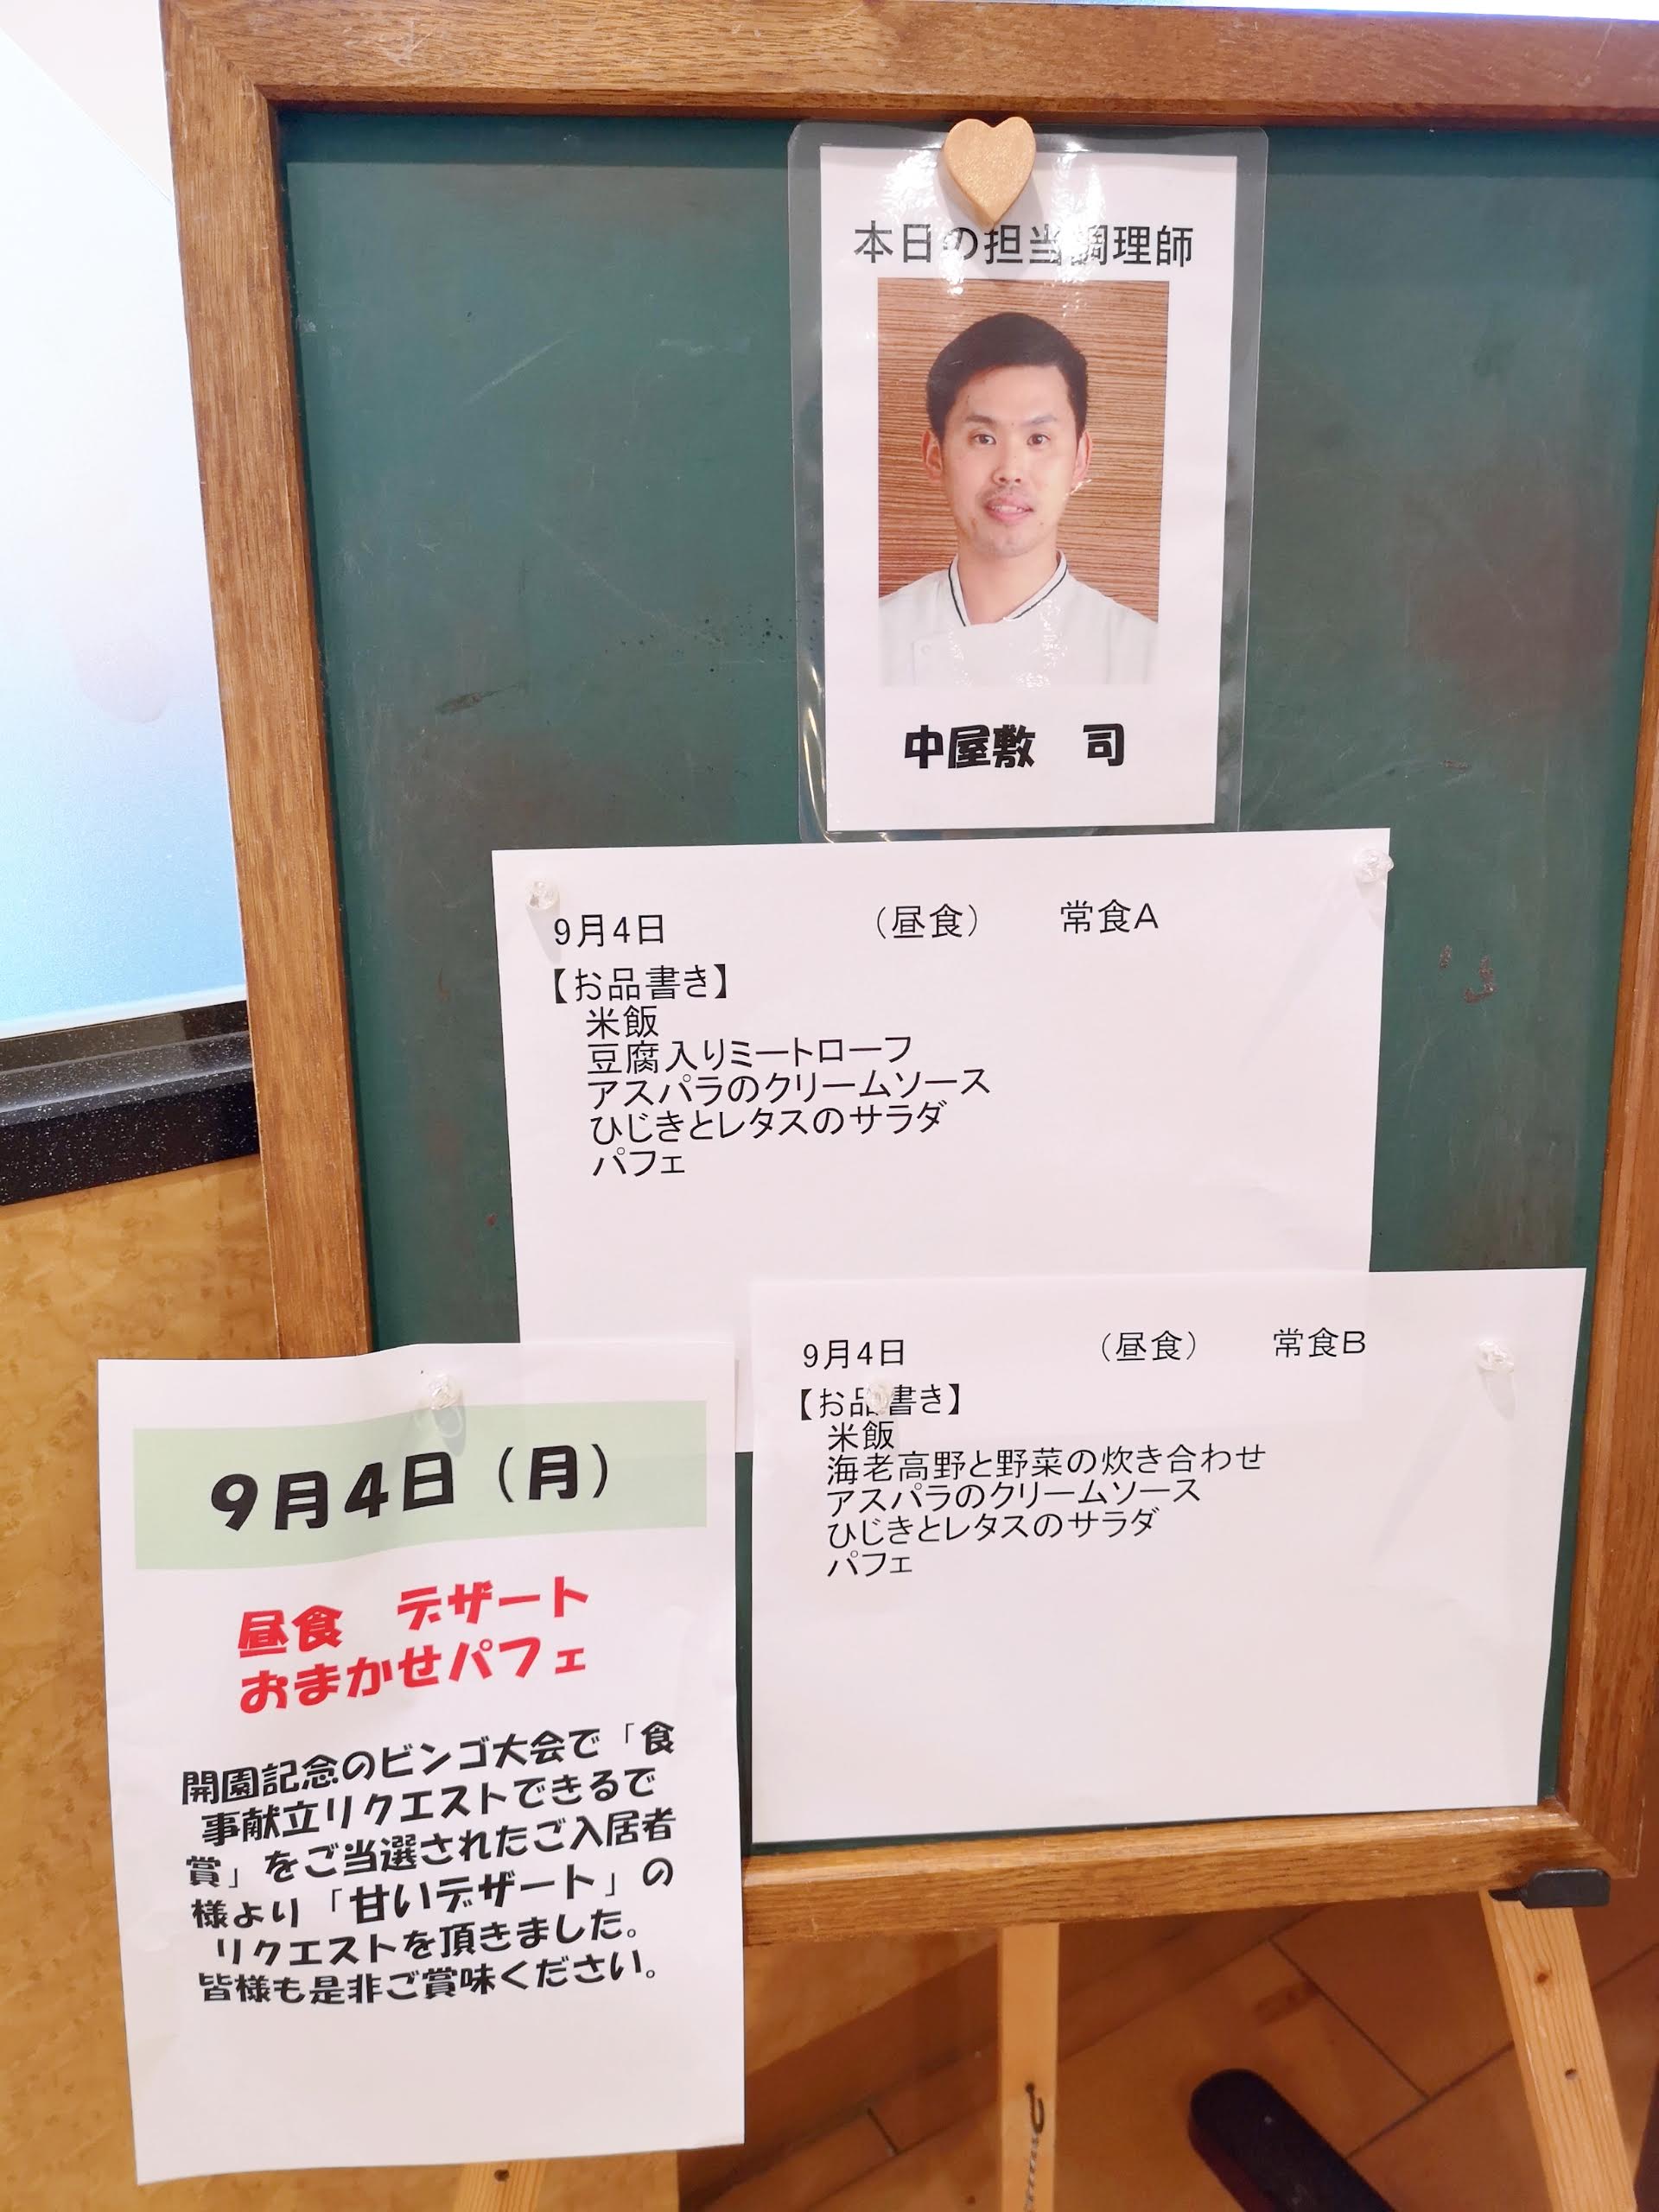 本日の担当調理師
中屋敷 司
9月4日 （昼食） 常食A
【お品書き】
米飯
豆腐入りミートローフ
アスパラのクリームソース
ひじきとレタスのサラダ
パフェ
9月4日 （昼食） 常食B
【お品書き】
米飯
海老高野と野菜の炊き合わせ
アスパラのクリームソース
ひじきとレタスのサラダ
パフェ
9月4日（月）
昼食 デザート
おまかせパフェ
開園記念のビンゴ大会で「食
事献立リクエストできるで
賞」をご当選されたご入居者
様より「甘いデザート」の
リクエストを頂きました。
皆様も是非ご賞味ください。